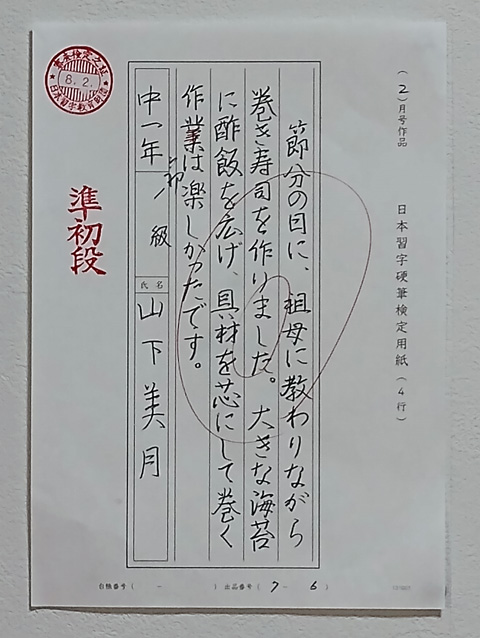 (２)月号作品
日本習字硬筆検定用紙(４行)
節分の日に、祖母に教わりながら
巻き寿司を作りました。大きな海苔
に酢飯を広げ、具材を芯にして巻く
作業は楽しかったです。
中一年 級 氏名 山下美月
8.2.
準初段
台帳番号( － ) 出品番号( 7 － 6 )